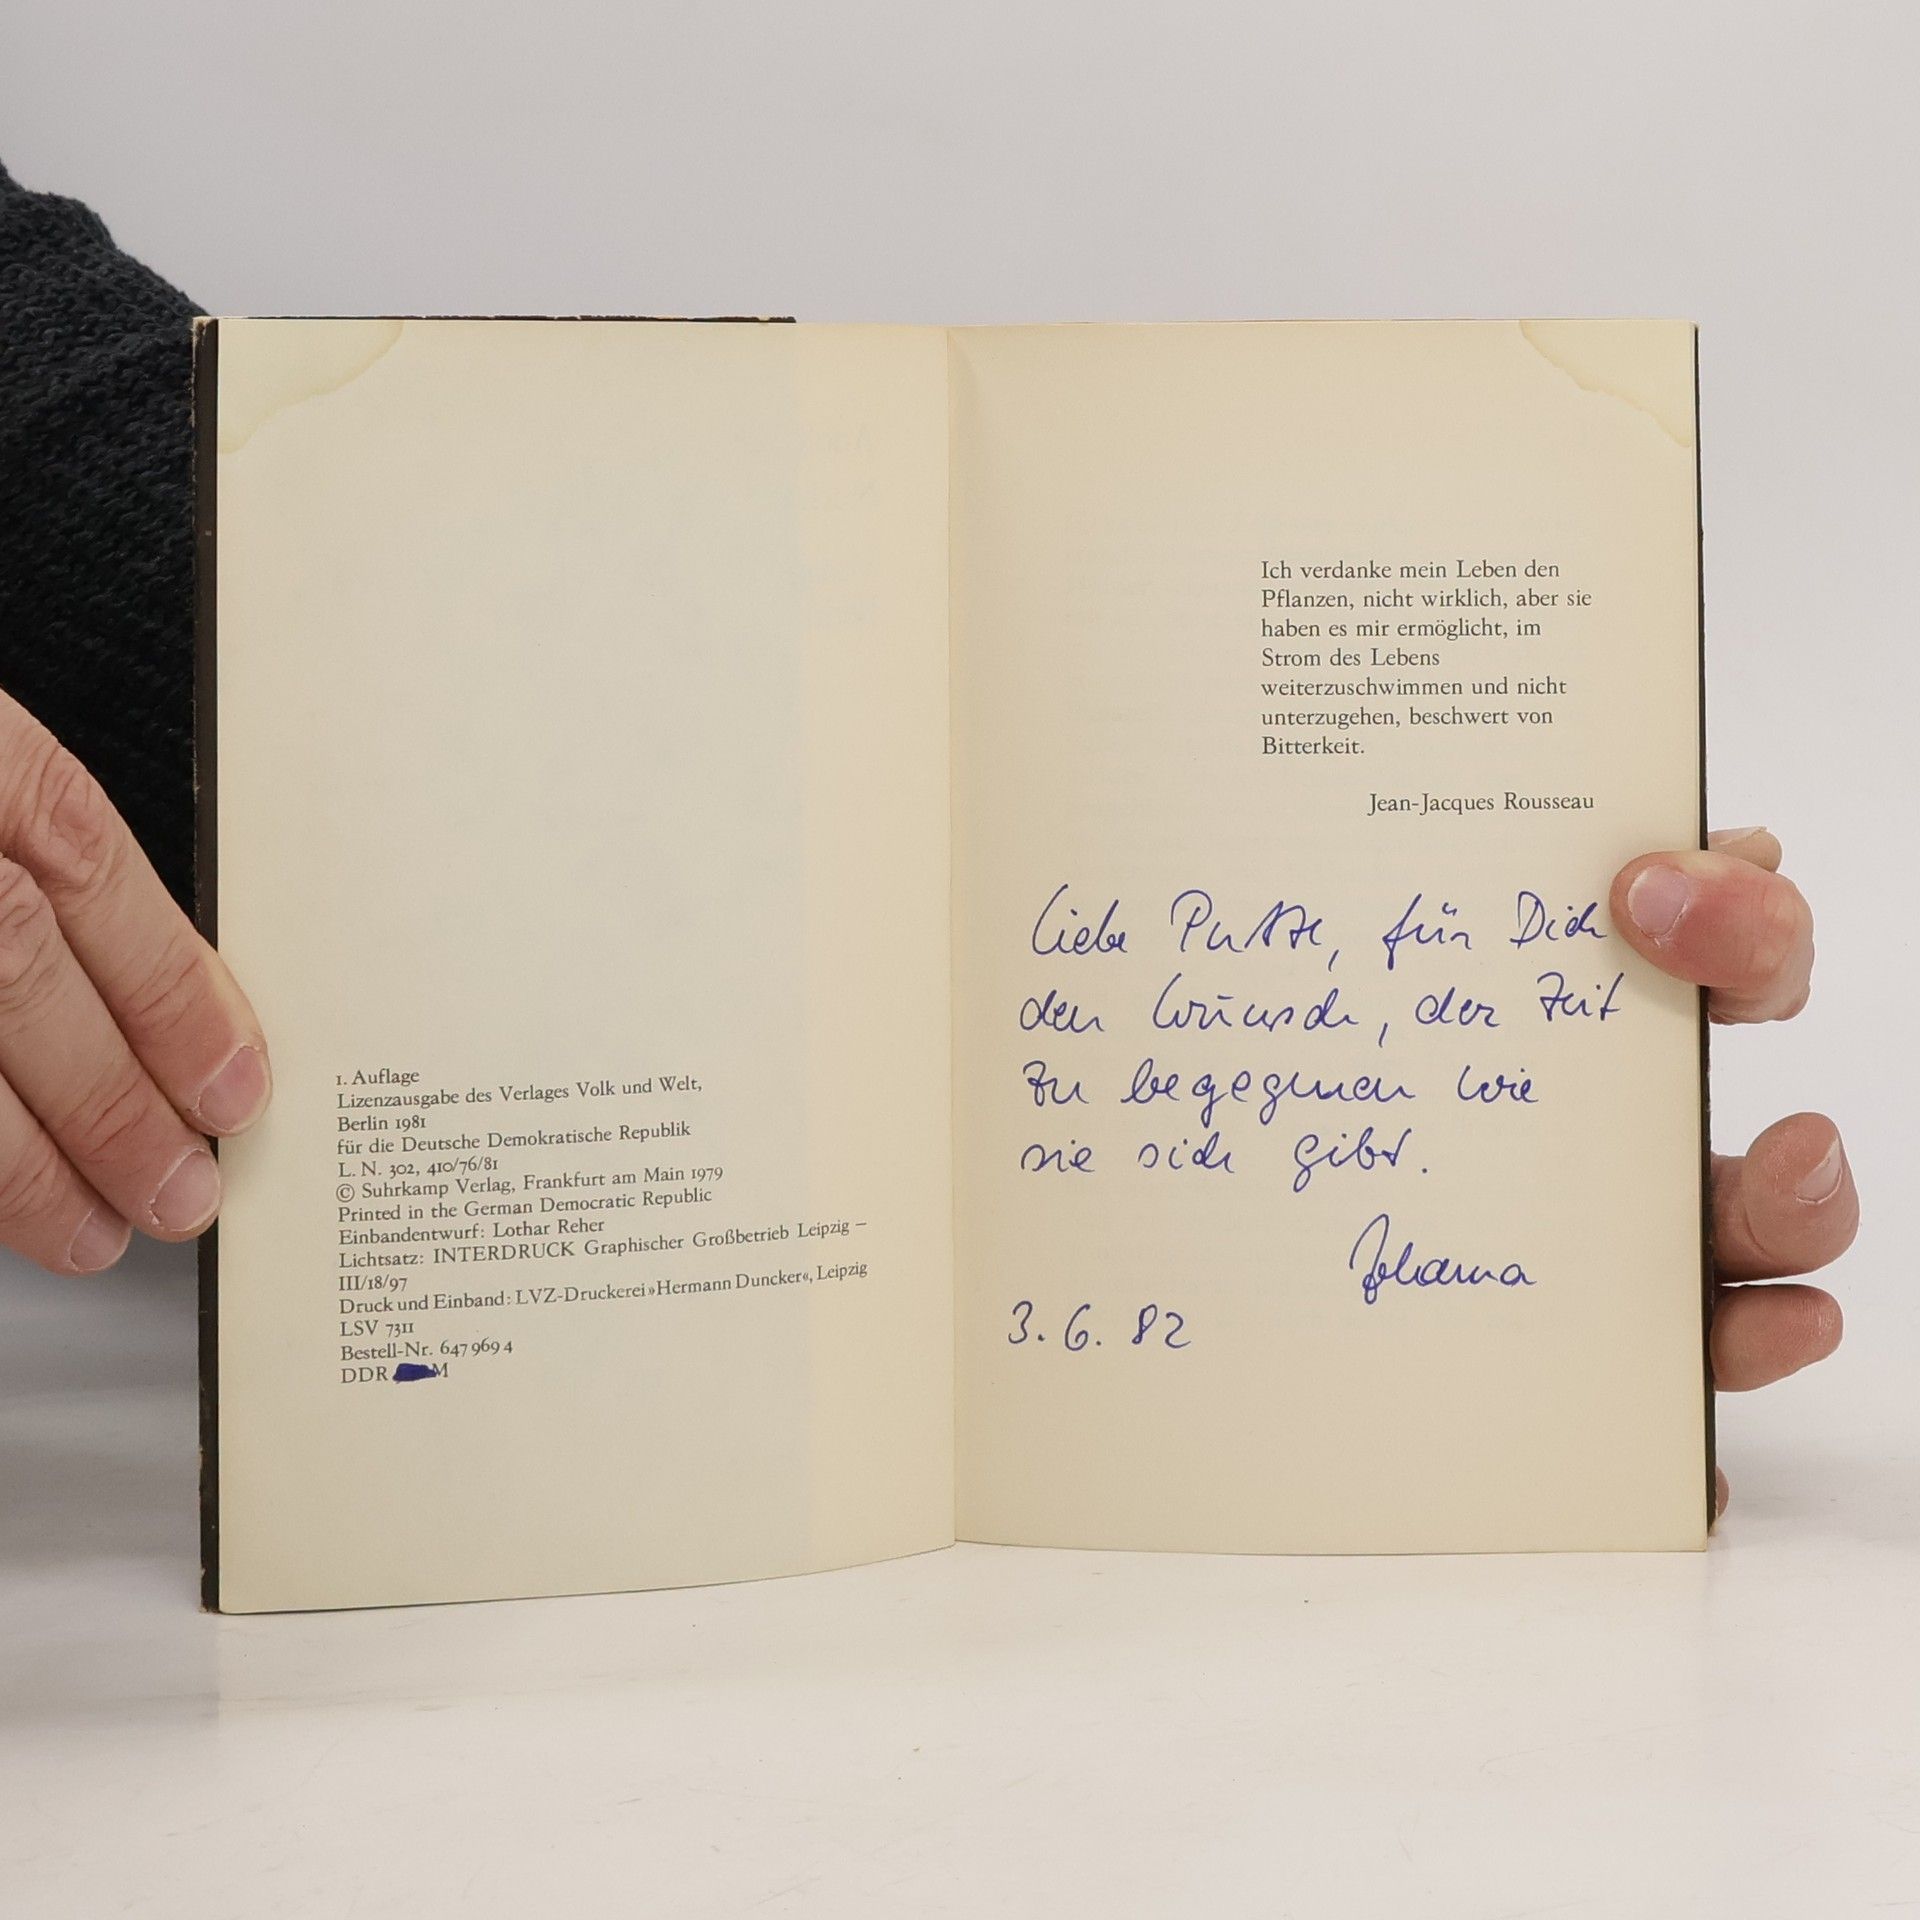 1. Auflage
Lizenzausgabe des Verlages Volk und Welt,
Berlin 1981
für die Deutsche Demokratische Republik
L. N. 302, 410/76/81
© Suhrkamp Verlag, Frankfurt am Main 1979
Printed in the German Democratic Republic
Einbandentwurf: Lothar Reher
Lichtsatz: INTERDRUCK Graphischer Großbetrieb Leipzig –
III/18/97
Druck und Einband: LVZ-Druckerei »Hermann Duncker«, Leipzig
LSV 7311
Bestell-Nr. 647 969 4
DDR M
Ich verdanke mein Leben den
Pflanzen, nicht wirklich, aber sie
haben es mir ermöglicht, im
Strom des Lebens
weiterzuschwimmen und nicht
unterzugehen, beschwert von
Bitterkeit.
Jean-Jacques Rousseau
Liebe für Dich
den Wunsch, der Zeit
zu begegnen wie
sie sich gibt.
Johanna
3. 6. 82